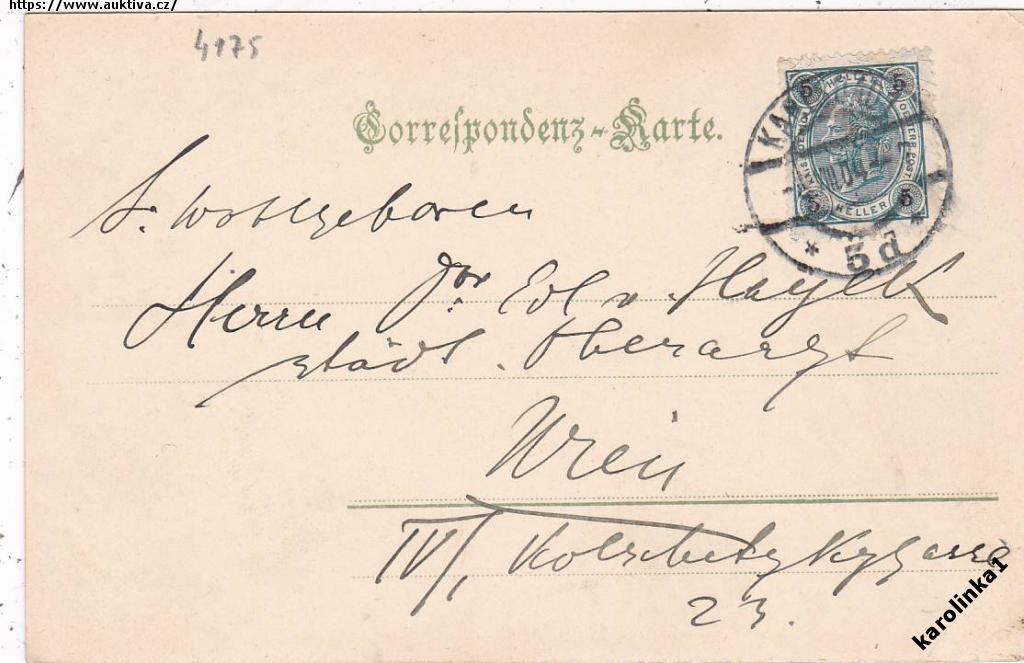 https://www.auktiva.cz/
4175
Correspondenz-Karte.
5 HELLER 5
5 HELLER 5
KA
III 04
* 5d *
S. Wohlgeboren
Herrn Dor Edl v. Hayek
städt. Oberarzt
Wien
IV/1
23.
karolinka1